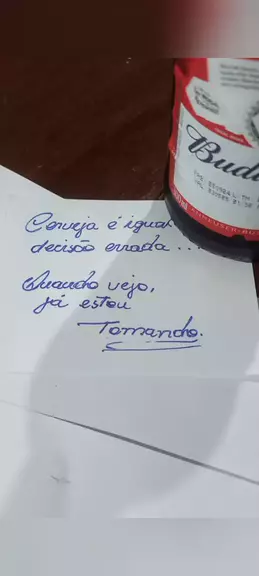 Budw
Cerveja é igual
decisão errada...
Quando vejo,
já estou
Tomando.